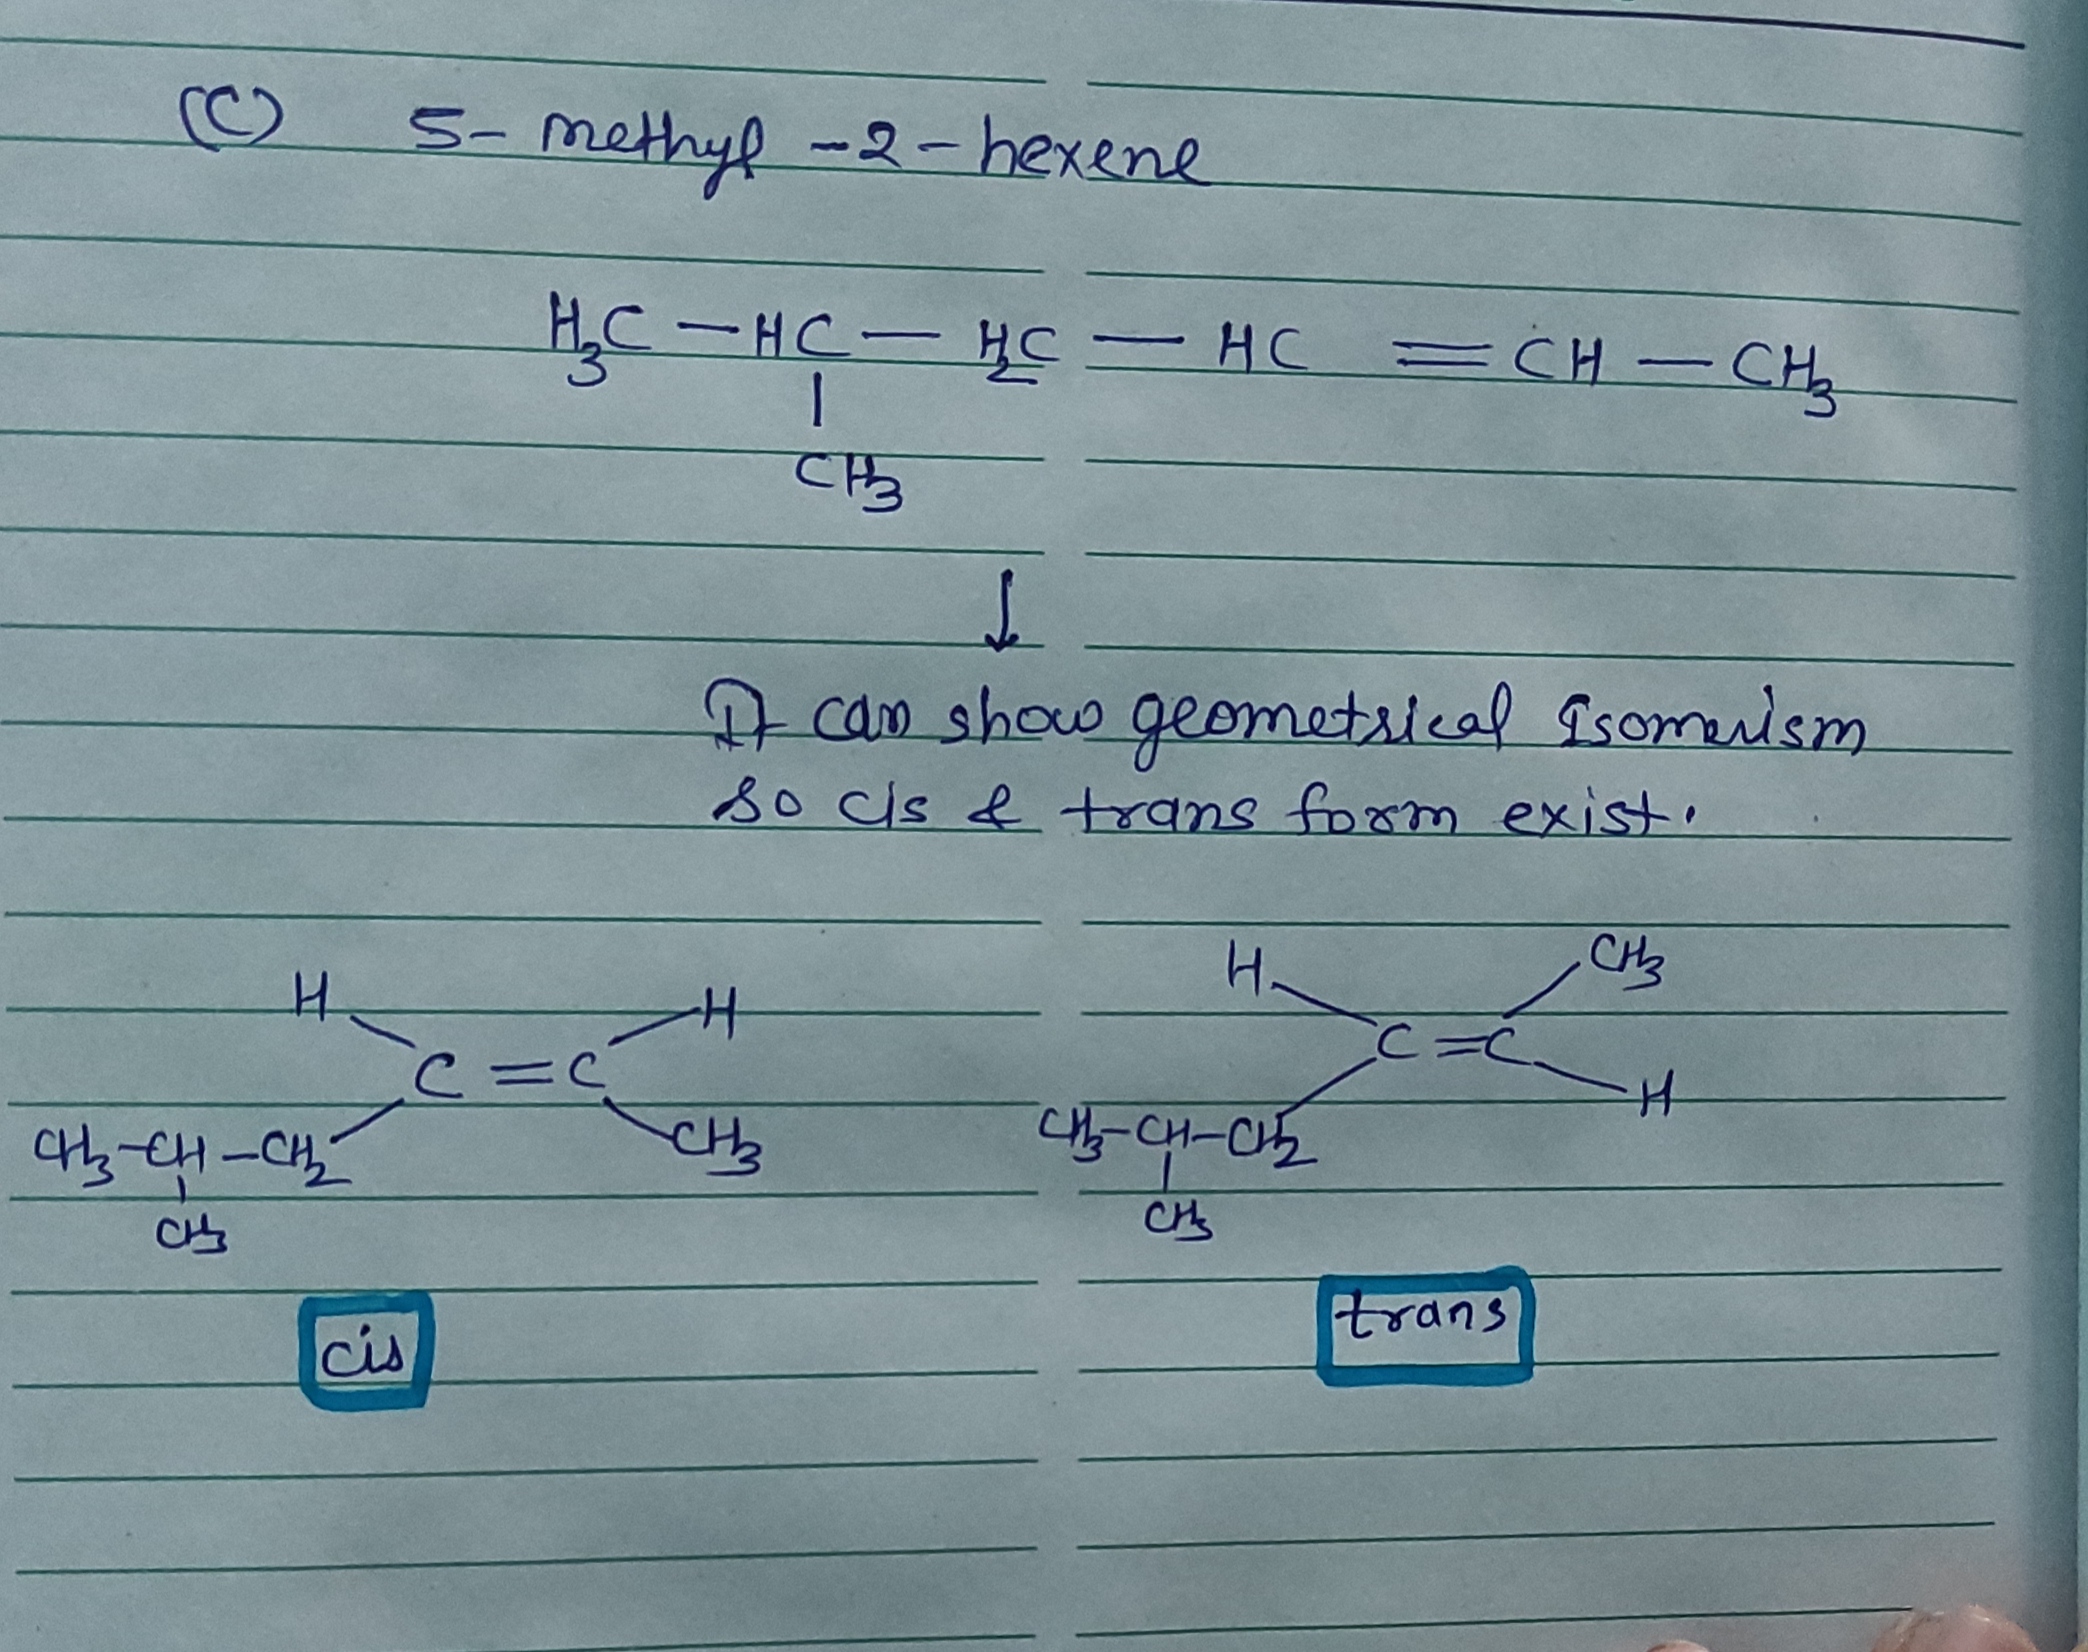 (C) 5- methyl -2- hexene
H₃C — HC — H₂C — HC = CH — CH₃
|
CH₃
↓
It can show geometrical Isomerism
so cis & trans form exist.
H H
C = C
CH₃-CH-CH₂ CH₃
CH₃
cis
H CH₃
C = C
H
CH₃-CH-CH₂
CH₃
trans